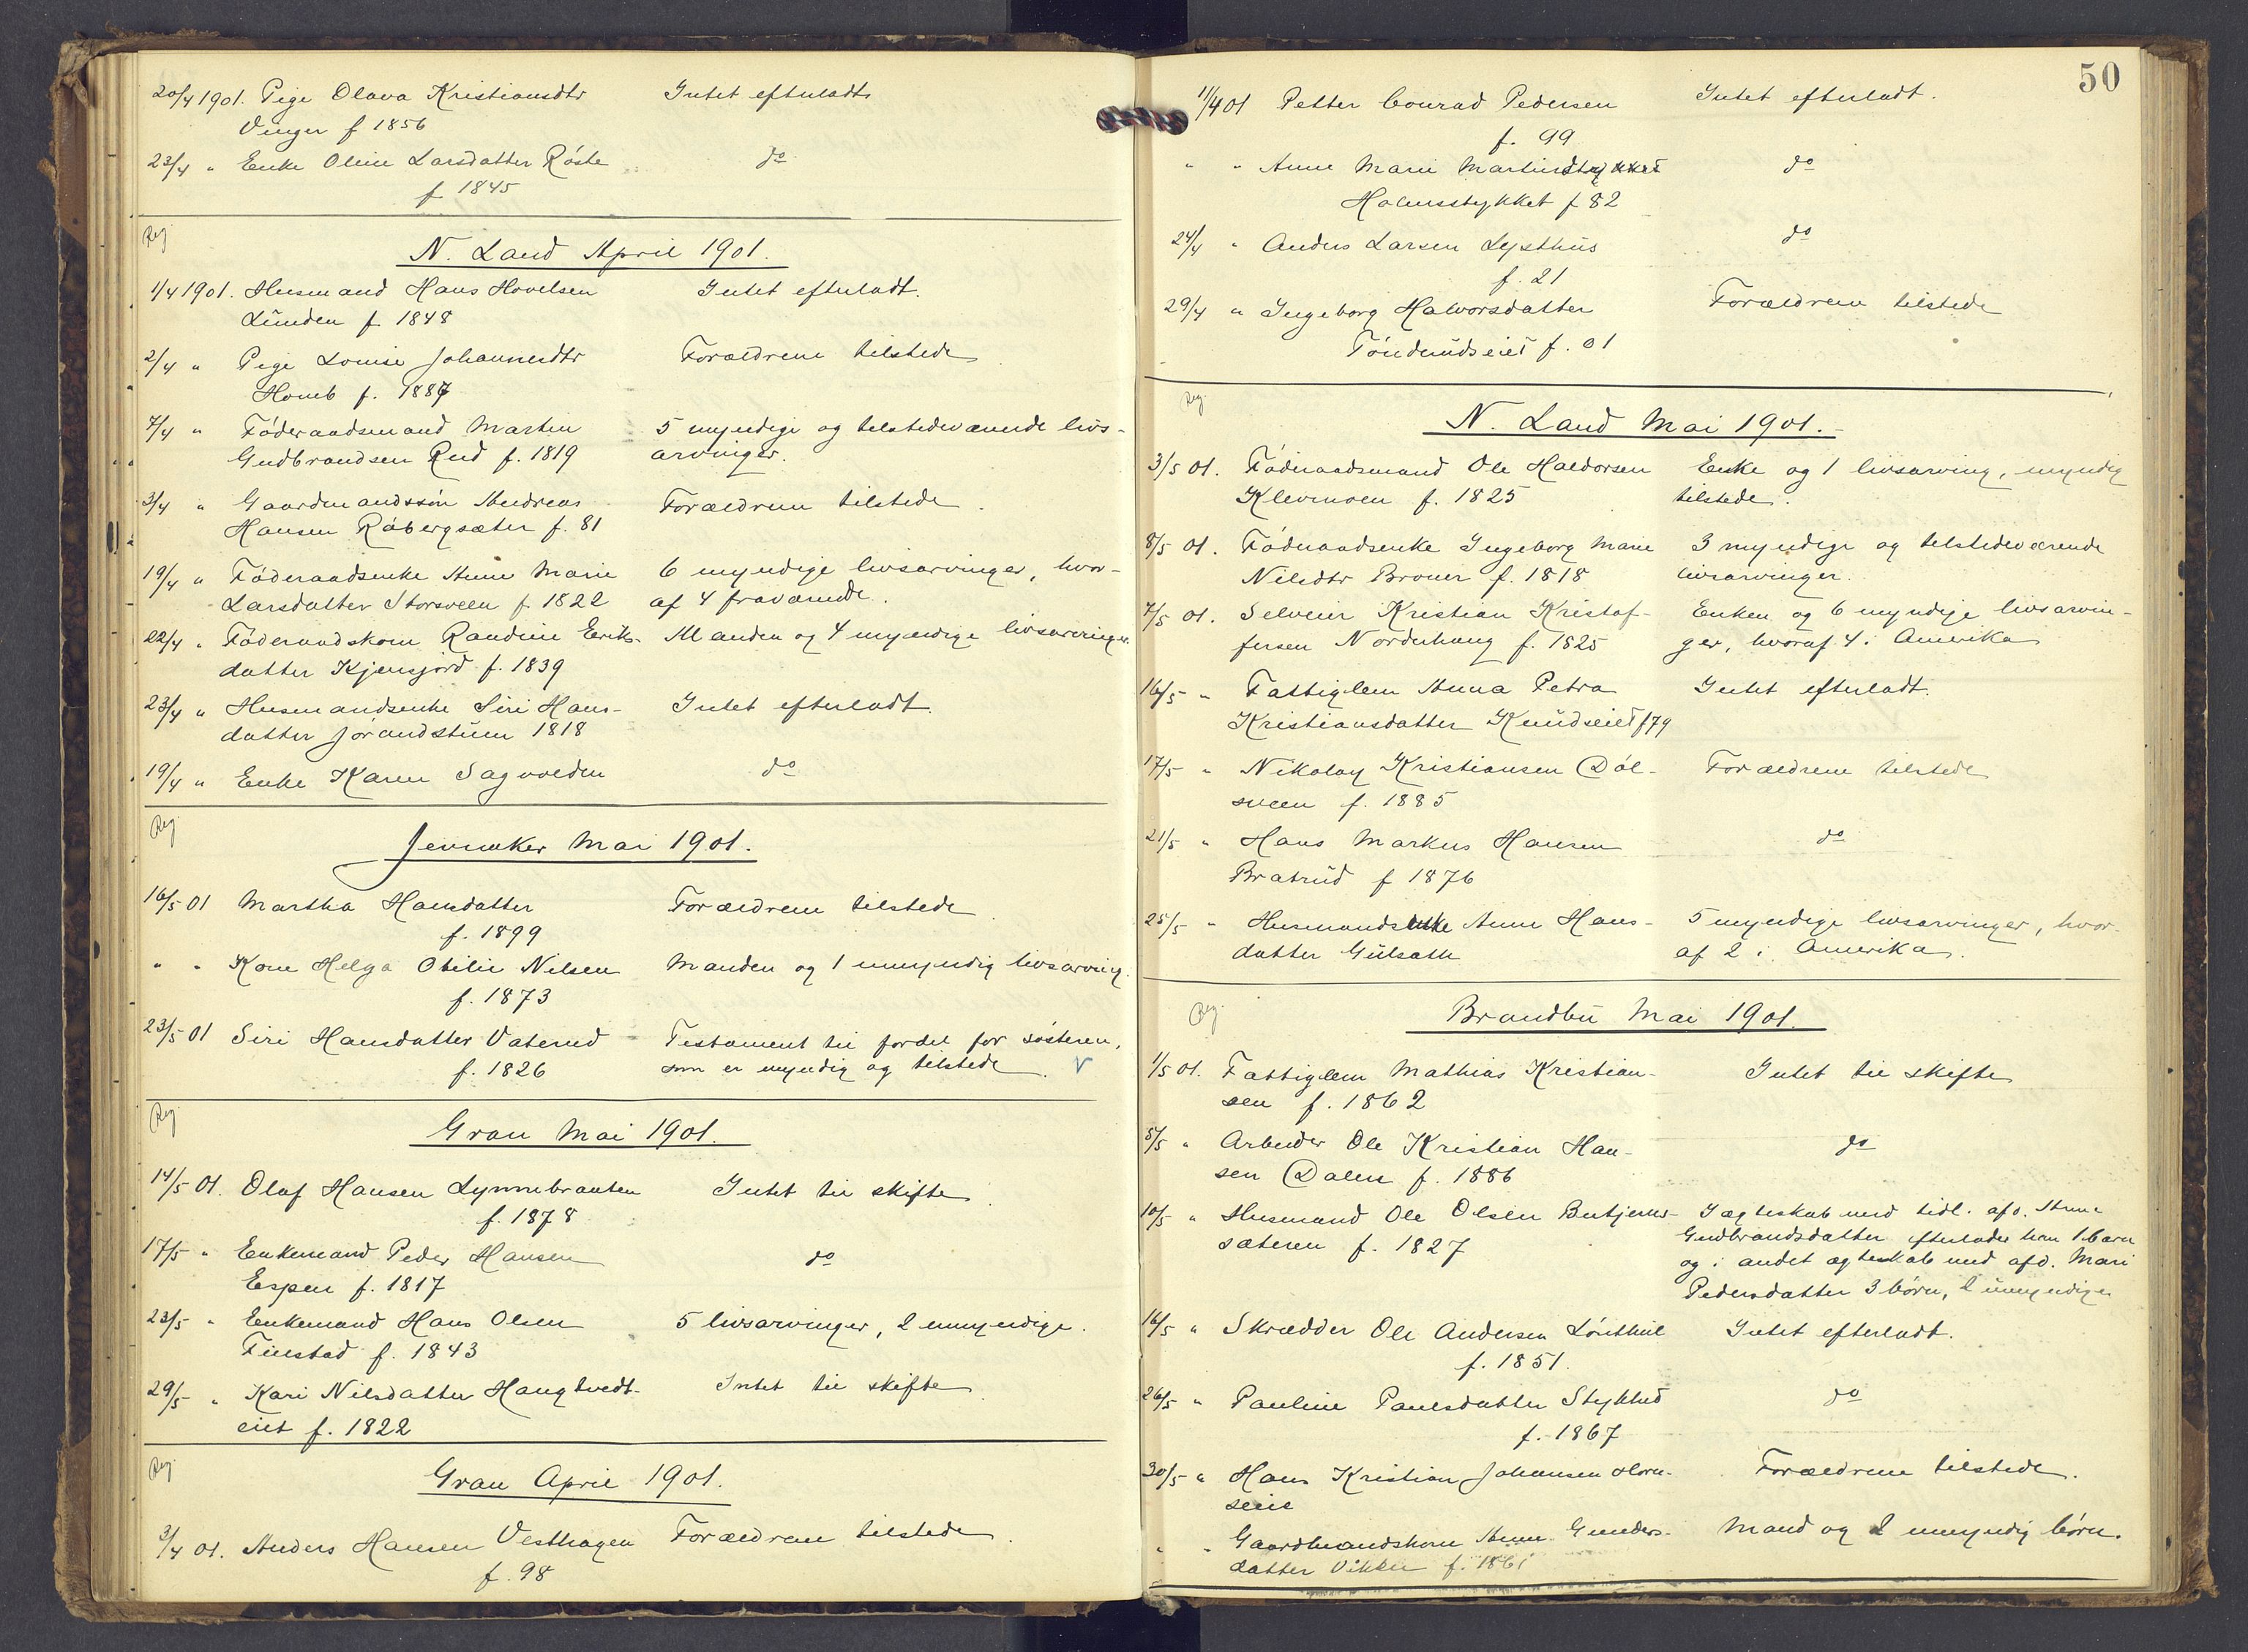 20/4 1901. Pige Olava Kristiansdtr Intet efterladt
Vinger f 1856
23/4 " Enke Oline Larsdatter Röste do
f 1845
Reg.
N. Land April 1901.
1/4 1901. Husmand Hans Hovelsen Intet efterladt.
Lunden f. 1848
2/4 " Pige Lovise Johannesdtr Forældrene tilstede
Homb f. 1887
7/4 " Föderaadsmand Martin 5 myndige og tilstedeværende livs-
Gudbrandsen Rud f. 1819 arvinger.
3/4 " Gaardmandssön Andreas Forældrene tilstede.
Hansen Råbergsæter f. 81
19/4 " Föderaadsenke Anne Marie 6 myndige livsarvinger, hvor-
Larsdatter Storsveen f. 1822 af 4 fraværende.
22/4 " Föderaadskone Randine Eriks- Manden og 4 myndige livsarvinger.
datter Kjensjord f. 1839
23/4 " Husmandsenke Siri Hans- Intet efterladt.
datter Jörandstuen 1818
19/4 " Enke Karen Sagvolden do
Reg.
Jevnaker Mai 1901.
16/5 01 Martha Hansdatter Forældrene tilstede.
f. 1899
" " Kone Helga Otilie Nilsen Manden og 1 umyndig livsarving.
f. 1873
23/5 01 Siri Hansdatter Vaterud Testament til fordel for sösteren,
f. 1826 som er myndig og tilstede. V
Reg.
Gran Mai 1901.
14/5 01. Olaf Hansen Lynnebraaten Intet til skifte
f. 1878
17/5 " Enkemand Peder Hansen do
Espen f. 1817
23/5 " Enkemand Hans Olsen 5 livsarvinger, 2 umyndige.
Finstad f. 1843
29/5 " Kari Nilsdatter Haugtvedt- Intet til skifte.
eiet f. 1822
Reg.
Gran April 1901.
3/4 01. Anders Hansen Vesthagen Forældrene tilstede.
f. 98
50
11/4 01 Petter Conrad Pedersen Intet efterladt.
f. 99
" " Anne Marie do
Holmsstykket f 82
24/4 " Anders Larsen Lysthus do
f. 21
29/4 " Ingeborg Halvorsdatter Forældrene tilstede
Tönderudseiet f. 01
Reg.
N. Land Mai 1901.
3/5 01. Föderaadsmand Ole Haldorsen Enke og 1 livsarving, myndig
Klevmoen f. 1825 tilstede.
8/5 01. Föderaadsenke Ingeborg Marie 3 myndige og tilstedeværende
Nilsdtr Broner f. 1818 livsarvinger.
7/5 01. Selveier Kristian Kristof- Enken og 6 myndige livsarvin-
fersen Norderhaug f. 1825 ger, hvoraf 4 i Amerika
16/5 " Fattiglem Anna Petra Intet efterladt.
Kristiansdatter Knudseiet f 79
17/5 " Nikolay Kristiansen Döl- Forældrene tilstede
sveen f. 1885
21/5 " Hans Markus Hansen do
Bratrud f 1876
25/5 " Husmandsenke Anne Hans- 5 myndige livsarvinger, hvor-
datter Gulsath af 2 i Amerika.
Reg.
Brandbu Mai 1901.
1/5 01. Fattiglem Mathias Kristian- Intet til skifte
sen f. 1862
5/5 " Arbeider Ole Kristian Han- do
sen Dalen f. 1886
10/5 " Husmand Ole Olsen Butjerns- I ægteskab med tidl. afd. Anne
sæteren f. 1827 Gudbrandsdatter efterlader han 1 barn
og i andet ægteskab med afd. Mari
Pedersdatter 3 börn, 2 umyndige
16/5 " Skrædder Ole Andersen Intet efterladt.
f. 1851.
26/5 " Pauline Paulsdatter Stykket do
f. 1867
30/5 " Hans Kristian Johansen Horn- Forældrene tilstede.
seie
" " Gaardmandskone Anne Gunders- Mand og 2 umyndig börn.
datter Vikken f. 1861